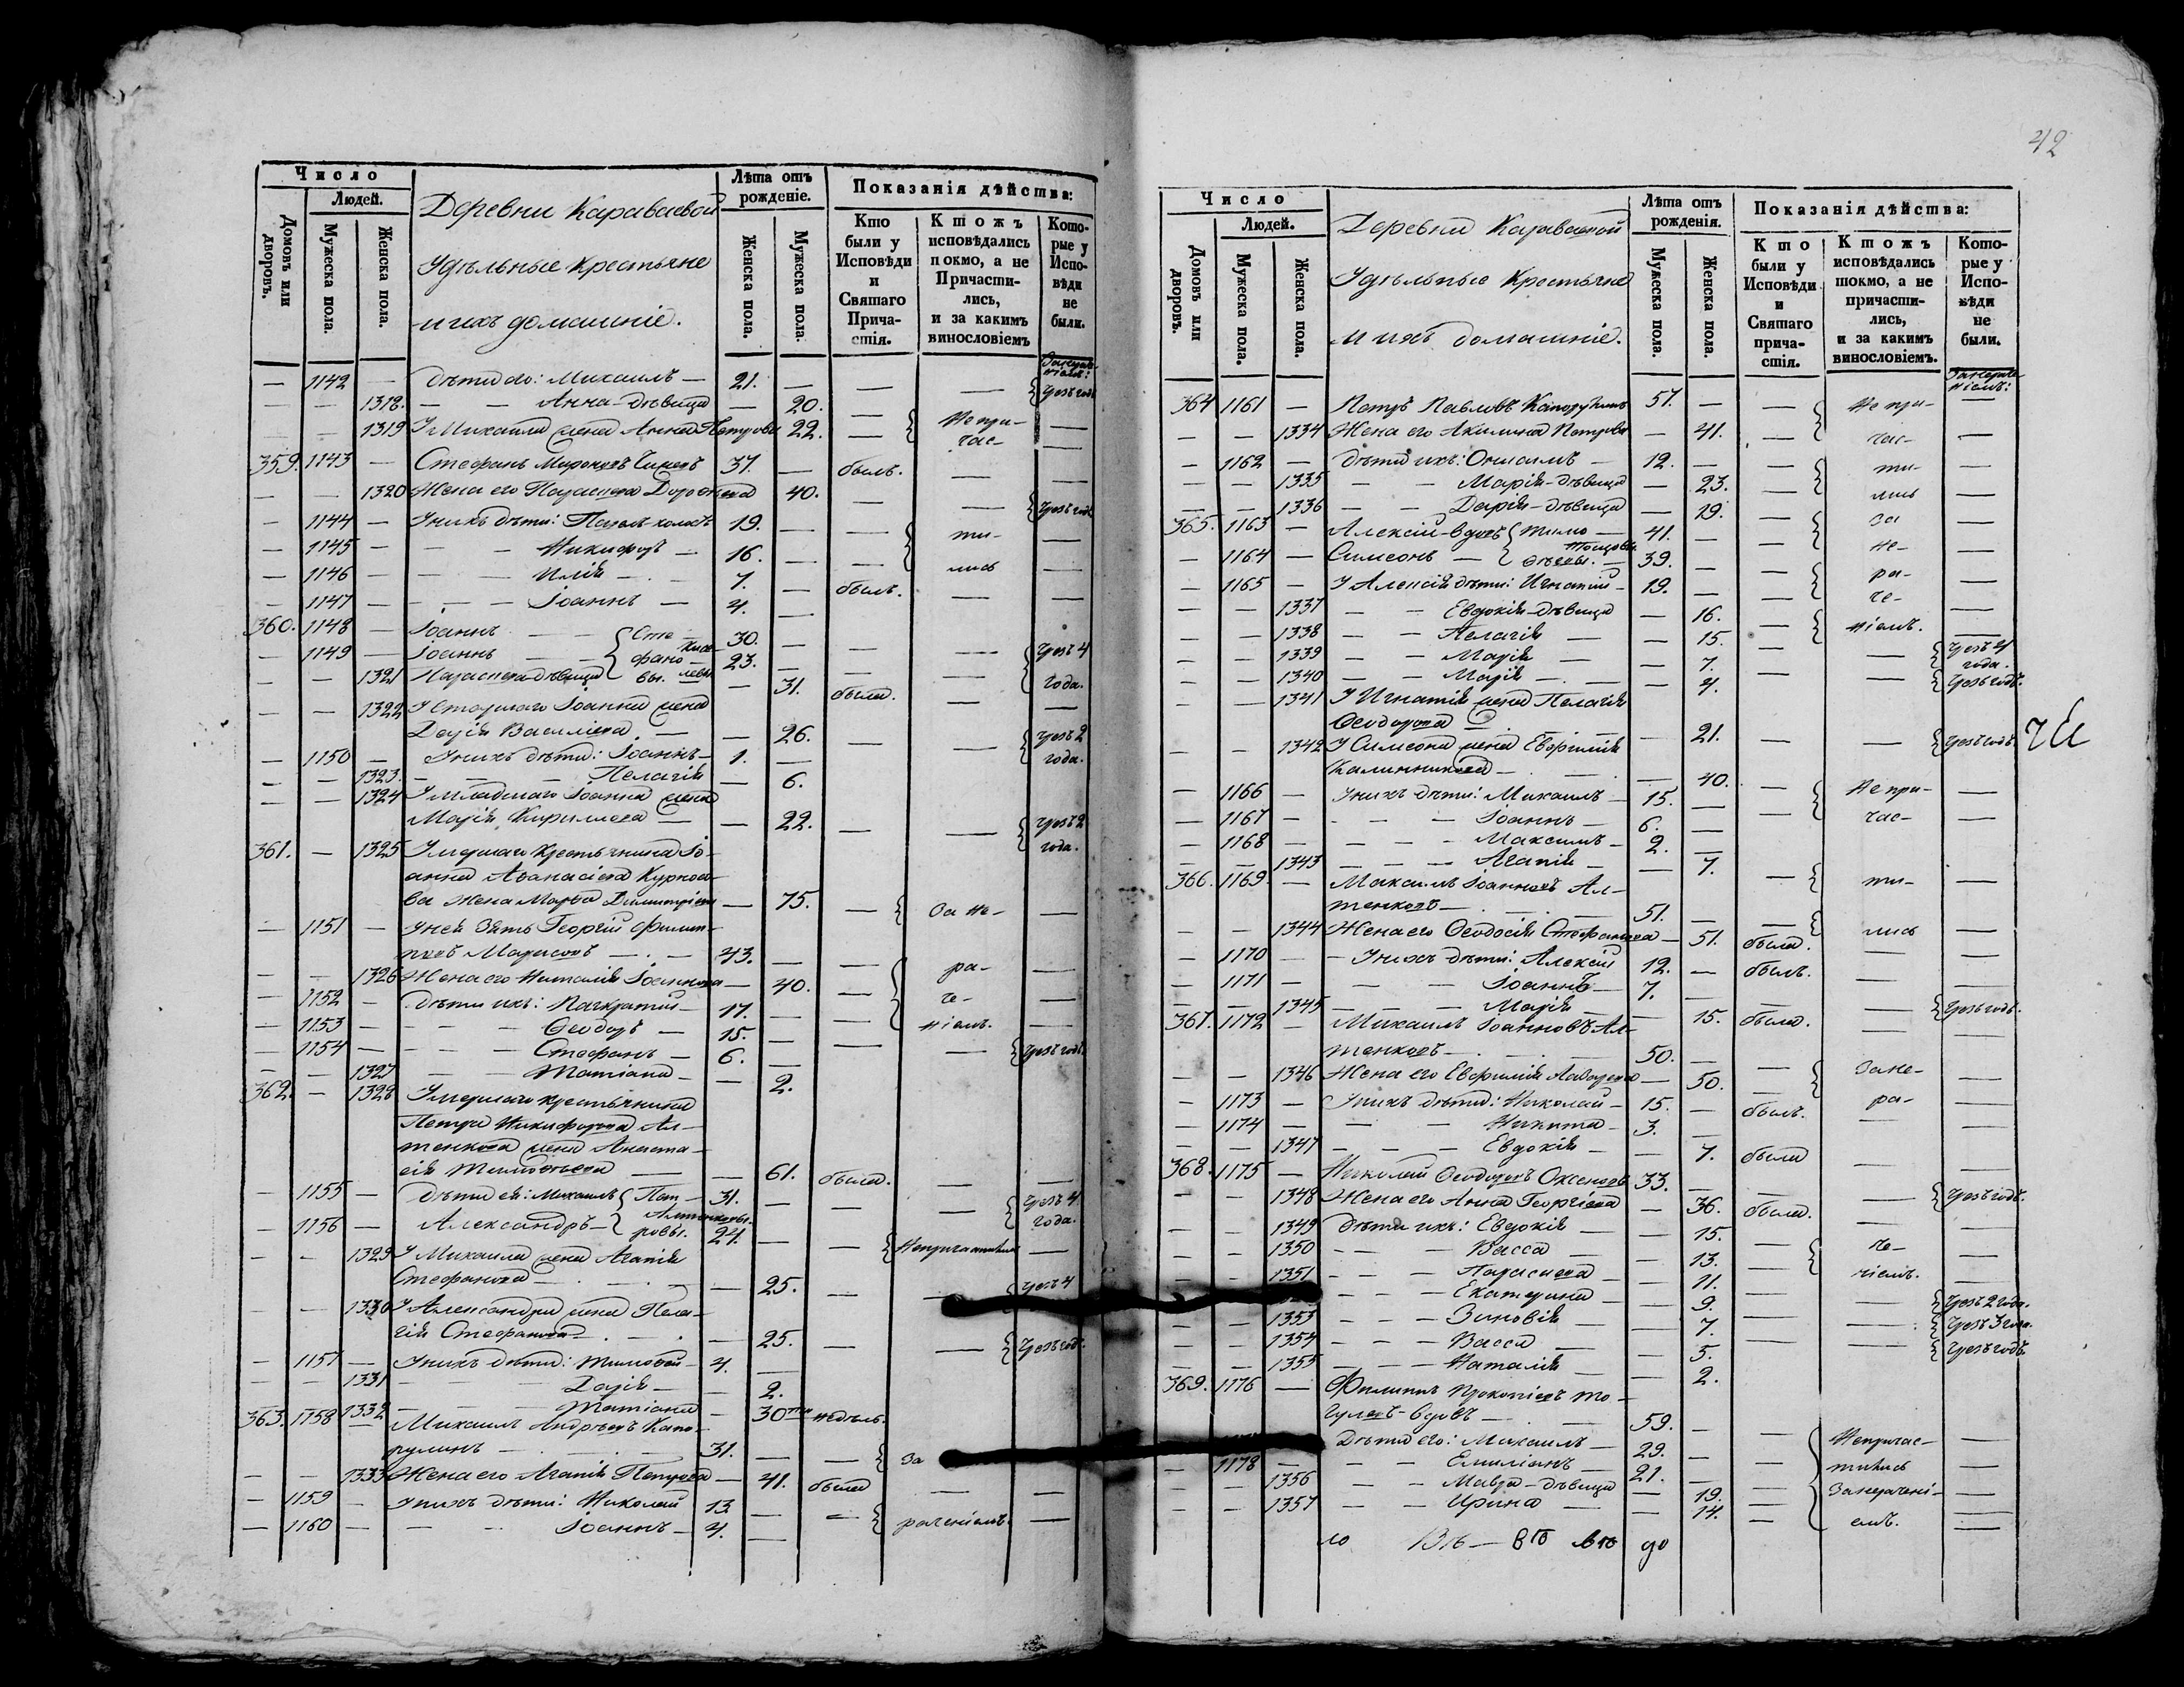 42
Число
Людей.
Домовъ или дворовъ.
Мужеска пола.
Женска пола.
Деревни Караваевой
Удѣльные Крестьяне
и ихъ домашніе.
Лѣта отъ рожденіе.
Женска пола.
Мужеска пола.
Показанія дѣйства:
Кто были у Исповѣди и Святаго Причастія.
Ктожъ исповѣдались покмо, а не Причастились, и за какимъ винословіемъ
Которые у Исповѣди не были.
— 1142 — дѣти его: Михаилъ — 21. —
— — 1318. — — Анна-дѣвица — 20. чрезъ годъ
— — 1319 У Михаила жена Анна Петрова 22. — Непри-
час-
359. 1143 — Стефанъ Мироновъ 37. — былъ.
— — 1320 Жена его Параскева 40. чрезъ годъ
— 1144 — У нихъ дѣти: 19.
— 1145 — — — Никифоръ — 16. ти-
— 1146 — — — Илія — 7. лись
— 1147 — — — Іоаннъ — 4. былъ.
360. 1148 — Іоаннъ Сте- 30.
— 1149 — Іоаннъ фано- 23. чрезъ 4
— — 1321 Параскева-дѣвица вы. 31. года.
— — 1322 У Старшаго Іоанна жена была.
Дарія Васильева — 26. чрезъ 2
— 1150 — У нихъ дѣти: Іоаннъ — 1. года.
— — 1323. — — Пелагія — 6.
— — 1324 У младшаго Іоанна жена
Марія Кириллова — 22. чрезъ 2
361. — 1325 Умершаго Крестьянина Іо- года.
анна Аѳанасіева
ва жена Марѳа Димитріева — 75. За не-
— 1151 — У ней Зять Георгій Филип-
повъ — 43.
— — 1326 Жена его Наталія Іоаннова — 40. ра-
— 1152 — дѣти ихъ: Панкратій — 17. че-
— 1153 — — — Ѳеодоръ — 15. ніемъ.
— 1154 — — — Стефанъ — 6. чрезъ годъ.
— — 1327 — — Татіана — 2.
362. — 1328 Умершаго крестьянина
Петра Никифорова Ал-
тенкова жена Анаста-
сія Тимоѳеева — 61. была.
— 1155 — дѣти ея: Михаилъ Пет- 31. чрезъ 4
— 1156 — Александръ — ровы. 24. года.
— — 1329 У Михаила жена Агапія Непричастились
Стефанова — 25.
— — 1330 У Александра жена Пела- чрезъ 4
гія Стефанова — 25. чрезъ годъ.
— 1157 — У нихъ дѣти: Тимоѳей — 4.
— — 1331 Дарія — 2.
1332 Татіана — 30ти недѣль.
363. 1158 — Михаилъ Андреевъ Капо-
рулинъ — 31. За
— — 1333 Жена его Агапія Петрова — 41. была
— 1159 — У нихъ дѣти: Николай 13.
— 1160 — — Іоаннъ — 4. раченіемъ.
Число
Людей.
Домовъ или дворовъ.
Мужеска пола.
Женска пола.
Деревни Караваевой
Удѣльные Крестьяне
и ихъ домашніе.
Лѣта отъ рожденія.
Мужеска пола.
Женска пола.
Показанія дѣйства:
Кто были у Исповѣди и Святаго причастія.
Ктожъ исповѣдались токмо, а не причастились, и за какимъ винословіемъ.
Которые у Исповѣди не были.
364 1161 — Петръ Павловъ Капорулинъ 57. — Не при-
— — 1334 Жена его Акилина Петрова — 41. час-
— 1162 — дѣти ихъ: Онисимъ — 12. ти-
— — 1335 — — Марія-дѣвица — 23. лись
— — 1336 — — Дарія-дѣвица — 19. За
365. 1163 — Алексій-вдовъ Тимо- 41. не-
— 1164 — Симеонъ — ѳѣевы. — 39. ра-
— 1165 — У Алексія дѣти: Игнатій — 19. че-
— — 1337 — — Евдокія-дѣвица — 16. ніемъ.
— — 1338 — — Пелагія — 15.
— — 1339 — — Марія — 7. чрезъ 4 года.
— — 1340 — — Марія — 4. чрезъ годъ.
— — 1341 У Игнатія жена Пелагія
Ѳеодорова — 21.
— — 1342 У Симеона жена Евфимія чрезъ годъ
Калинникова — 40.
— 1166 — У нихъ дѣти: Михаилъ — 15. Не при-
— 1167 — — — Іоаннъ — 6. час-
— 1168 — — — Максимъ — 2.
— — 1343 — — Агапія — 7.
366. 1169 — Іоанновъ Ал- ти-
тенковъ — 51.
— — 1344 Жена его Ѳеодосія Стефанова — 51. была. лись
— 1170 — У нихъ дѣти: Алексій 12. — былъ.
— 1171 — — Іоаннъ — 7.
— — 1345 — — Марія — 15. была. чрезъ годъ.
367. 1172 — Михаилъ Іоанновъ Ал-
тенковъ — 50.
— — 1346 Жена его Евфимія — 50. За не-
— 1173 — У нихъ дѣти: Николай — 15. былъ. ра-
— 1174 — — — Никита — 3.
— — 1347 — — Евдокія — 7. была
368. 1175 — Николай Ѳеодоровъ 33.
— — 1348 Жена его Анна Георгіева — 36. была. чрезъ годъ.
— — 1349 дѣти ихъ: Евдокія — 15.
— — 1350 — — Васса — 13. че-
— — 1351 — — Параскева — 11. ніемъ.
— — Екатерина — 9.
— — 1353 — — Зиновія — 7. чрезъ 2 года.
— — 1354 — — Васса — 5. чрезъ 3 года.
— — 1355 — — Наталія — 2. чрезъ годъ.
369. 1176 — Филиппъ Прокопіевъ То-
гулевъ-вдовъ — 59.
Дѣти его: Михаилъ — 29. Непричас-
— 1178 — — Емиліанъ — 21. тились
— — 1356 — — Мавра-дѣвица — 19. За нерачені-
— — 1357 — — Ирина — 14. емъ.